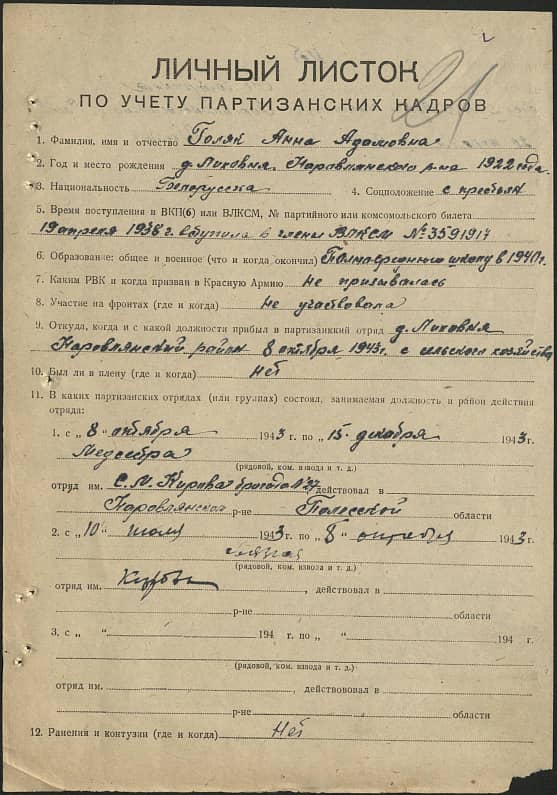 21
ЛИЧНЫЙ ЛИСТОК
ПО УЧЕТУ ПАРТИЗАНСКИХ КАДРОВ
1. Фамилия, имя и отчество Поляк Анна Адамовна
2. Год и место рождения д. Лиховня Наровлянского р-на 1922 года.
3. Национальность Белорусска 4. Соцположение с крестьян
5. Время поступления в ВКП(б) или ВЛКСМ, № партийного или комсомольского билета
19 апреля 1938 г. вступила в члены ВЛКСМ № 3591917
6. Образование: общее и военное (что и когда окончил) школу в 1940 г.
7. Каким РВК и когда призван в Красную Армию не призывалась
8. Участие на фронтах (где и когда) Не участвовала
9. Откуда, когда и с какой должности прибыл в партизанкий отряд д. Лиховня
Наровлянский район 8 октября 1943 г. с сельского хозяйства
10. Был ли в плену (где и когда) Нет
11. В каких партизанских отрядах (или группах) состоял, занимаемая должность и район действия
отряда:
1. с „8“ октября 1943 г. по „15“ декабря 1943 г.
Медсестра
(рядовой, ком. взвода и т. д.)
отряд им. С. М. Кирова бригада № 27 действовал в
Наровлянском р-не Полесской области
2. с „10“ июля 1943 г. по „8“ октября 1943 г.
связная
(рядовой, ком. взвода и т. д.)
отряд им. Кирова, действовал в
р-не области
3. с „ “ 194 г. по „ “ 194 г.
(рядовой, ком. взвода и т. д.)
отряд им. , действововал в
р-не области
12. Ранения и контузии (где и когда) Нет